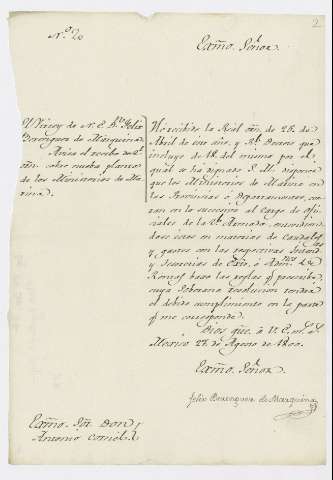 N.º 20
2
Exmo. Señor
El Virrey de N. E. Dn. Felix
Berenguer de Marquina
Avisa el recibo de Rl.
orn. sobre nueva planta
de los Ministerios de Ma
rina.
He recibido la Real orn. de 25. de
Abril de este año, y Rl. Decreto que
incluye de 18. del mismo por el
qual se ha dignado S. M. disponer
que los Ministerios de Marina en
las Provincias ó Departamentos, cor
ran en lo succesivo al cargo de Ofi
ciales de la Rl. Armada, entendien
dose estos en materias de caudales
y gastos con las respectivas Intend.
y Tesorerias de Exto. ó
Rentas bajo las reglas q. prescribe,
cuya Soberana resolucion tendrá
el debido cumplimiento en la parte
q. me corresponde.
Dios gue. á V. E. ms. as.
Mexico 27. de Agosto de 1800.
Exmo. Señor
Felix Berenguer de Marquina
Exmo. Sor. Don
Antonio Cornel.